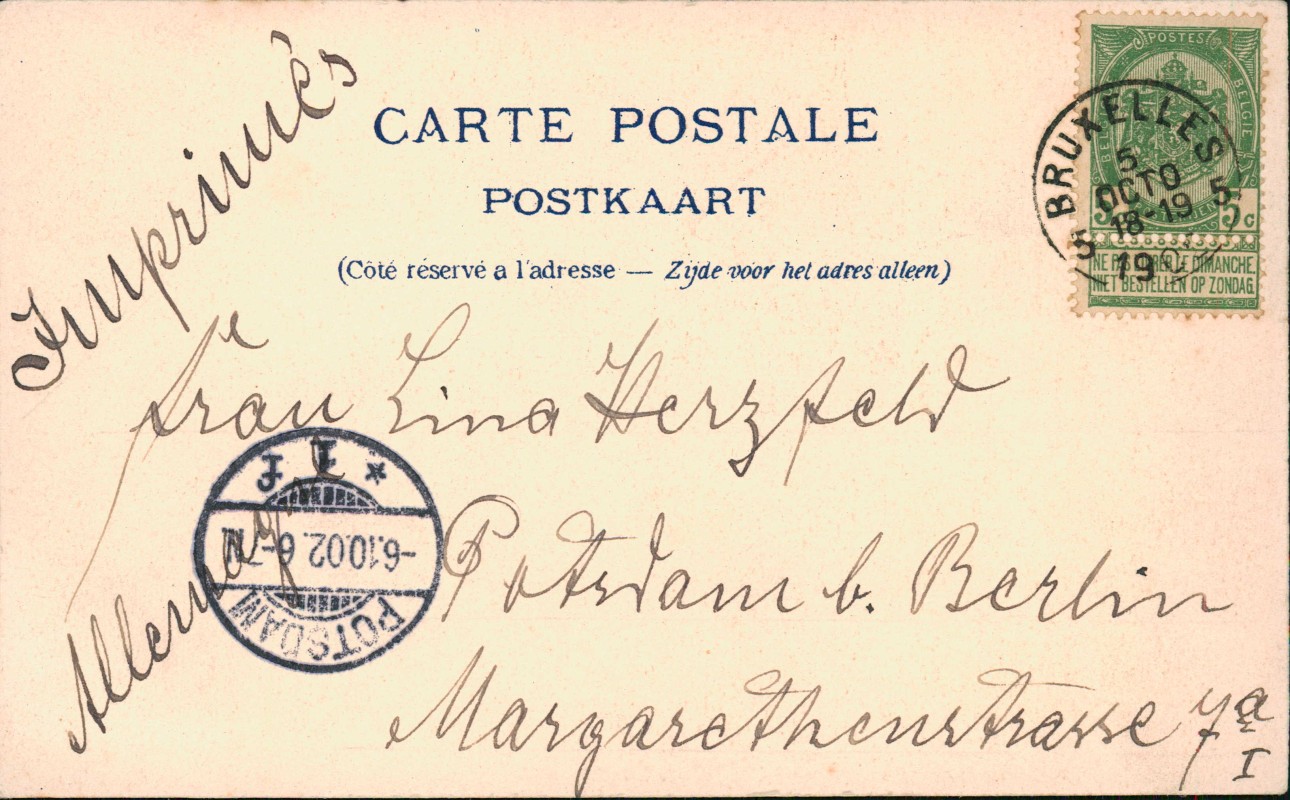 Imprimés
CARTE POSTALE
POSTKAART
(Côté réservé a l'adresse — Zijde voor het adres alleen)
POSTES
BELGIQUE
BELGIE
5 c
NE PAS LIVRER LE DIMANCHE.
NIET BESTELLEN OP ZONDAG.
BRUXELLES
5
OCTO
18-19
5 5
19
Frau Lina Herzfeld
Potsdam b. Berlin
Margarethenstrasse 7a
I
Allemagne
POTSDAM
-6.10.02.6-7N
* 1 f